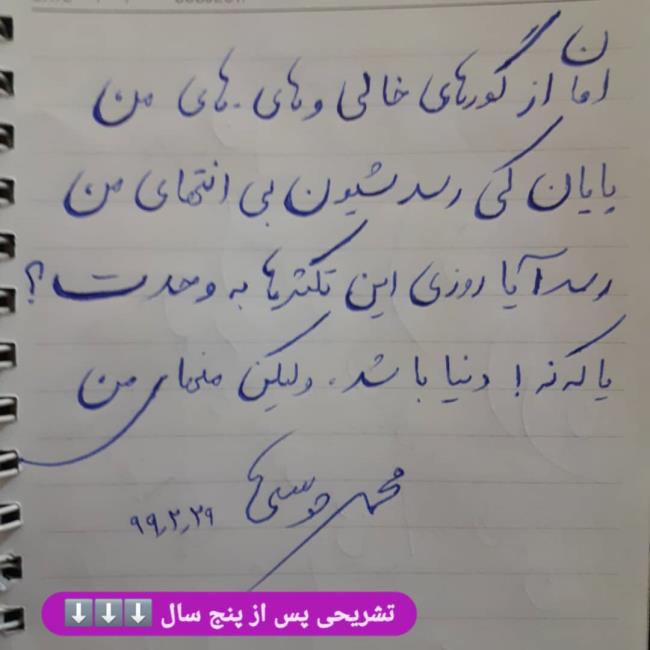 امان از گورهای خالی و های های من
پایان کی رسد شیون بی انتهای من
رسد آیا روزی این تکثرها به وحدت؟
یا که نه! دنیا باشد، ولیکن منهای من
محمد
۹۹,۲,۲۹
تشریحی پس از پنج سال